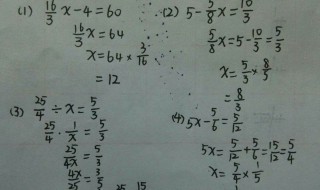 (1) 16/3 x - 4 = 60
16/3 x = 64
x = 64 × 3/16
= 12
(2) 5 - 5/8 x = 10/3
5/8 x = 5 - 10/3 = 5/3
x = 5/3 × 8/5
= 8/3
(3) 25/4 ÷ x = 5/3
25/4 · 1/x = 5/3
25/4x = 5/3
4x/25 = 3/5
25 15
(4) 5x - 5/6 = 5/12
5x = 5/12 + 5/6 = 15/12 = 5/4
x = 5/4 × 1/5